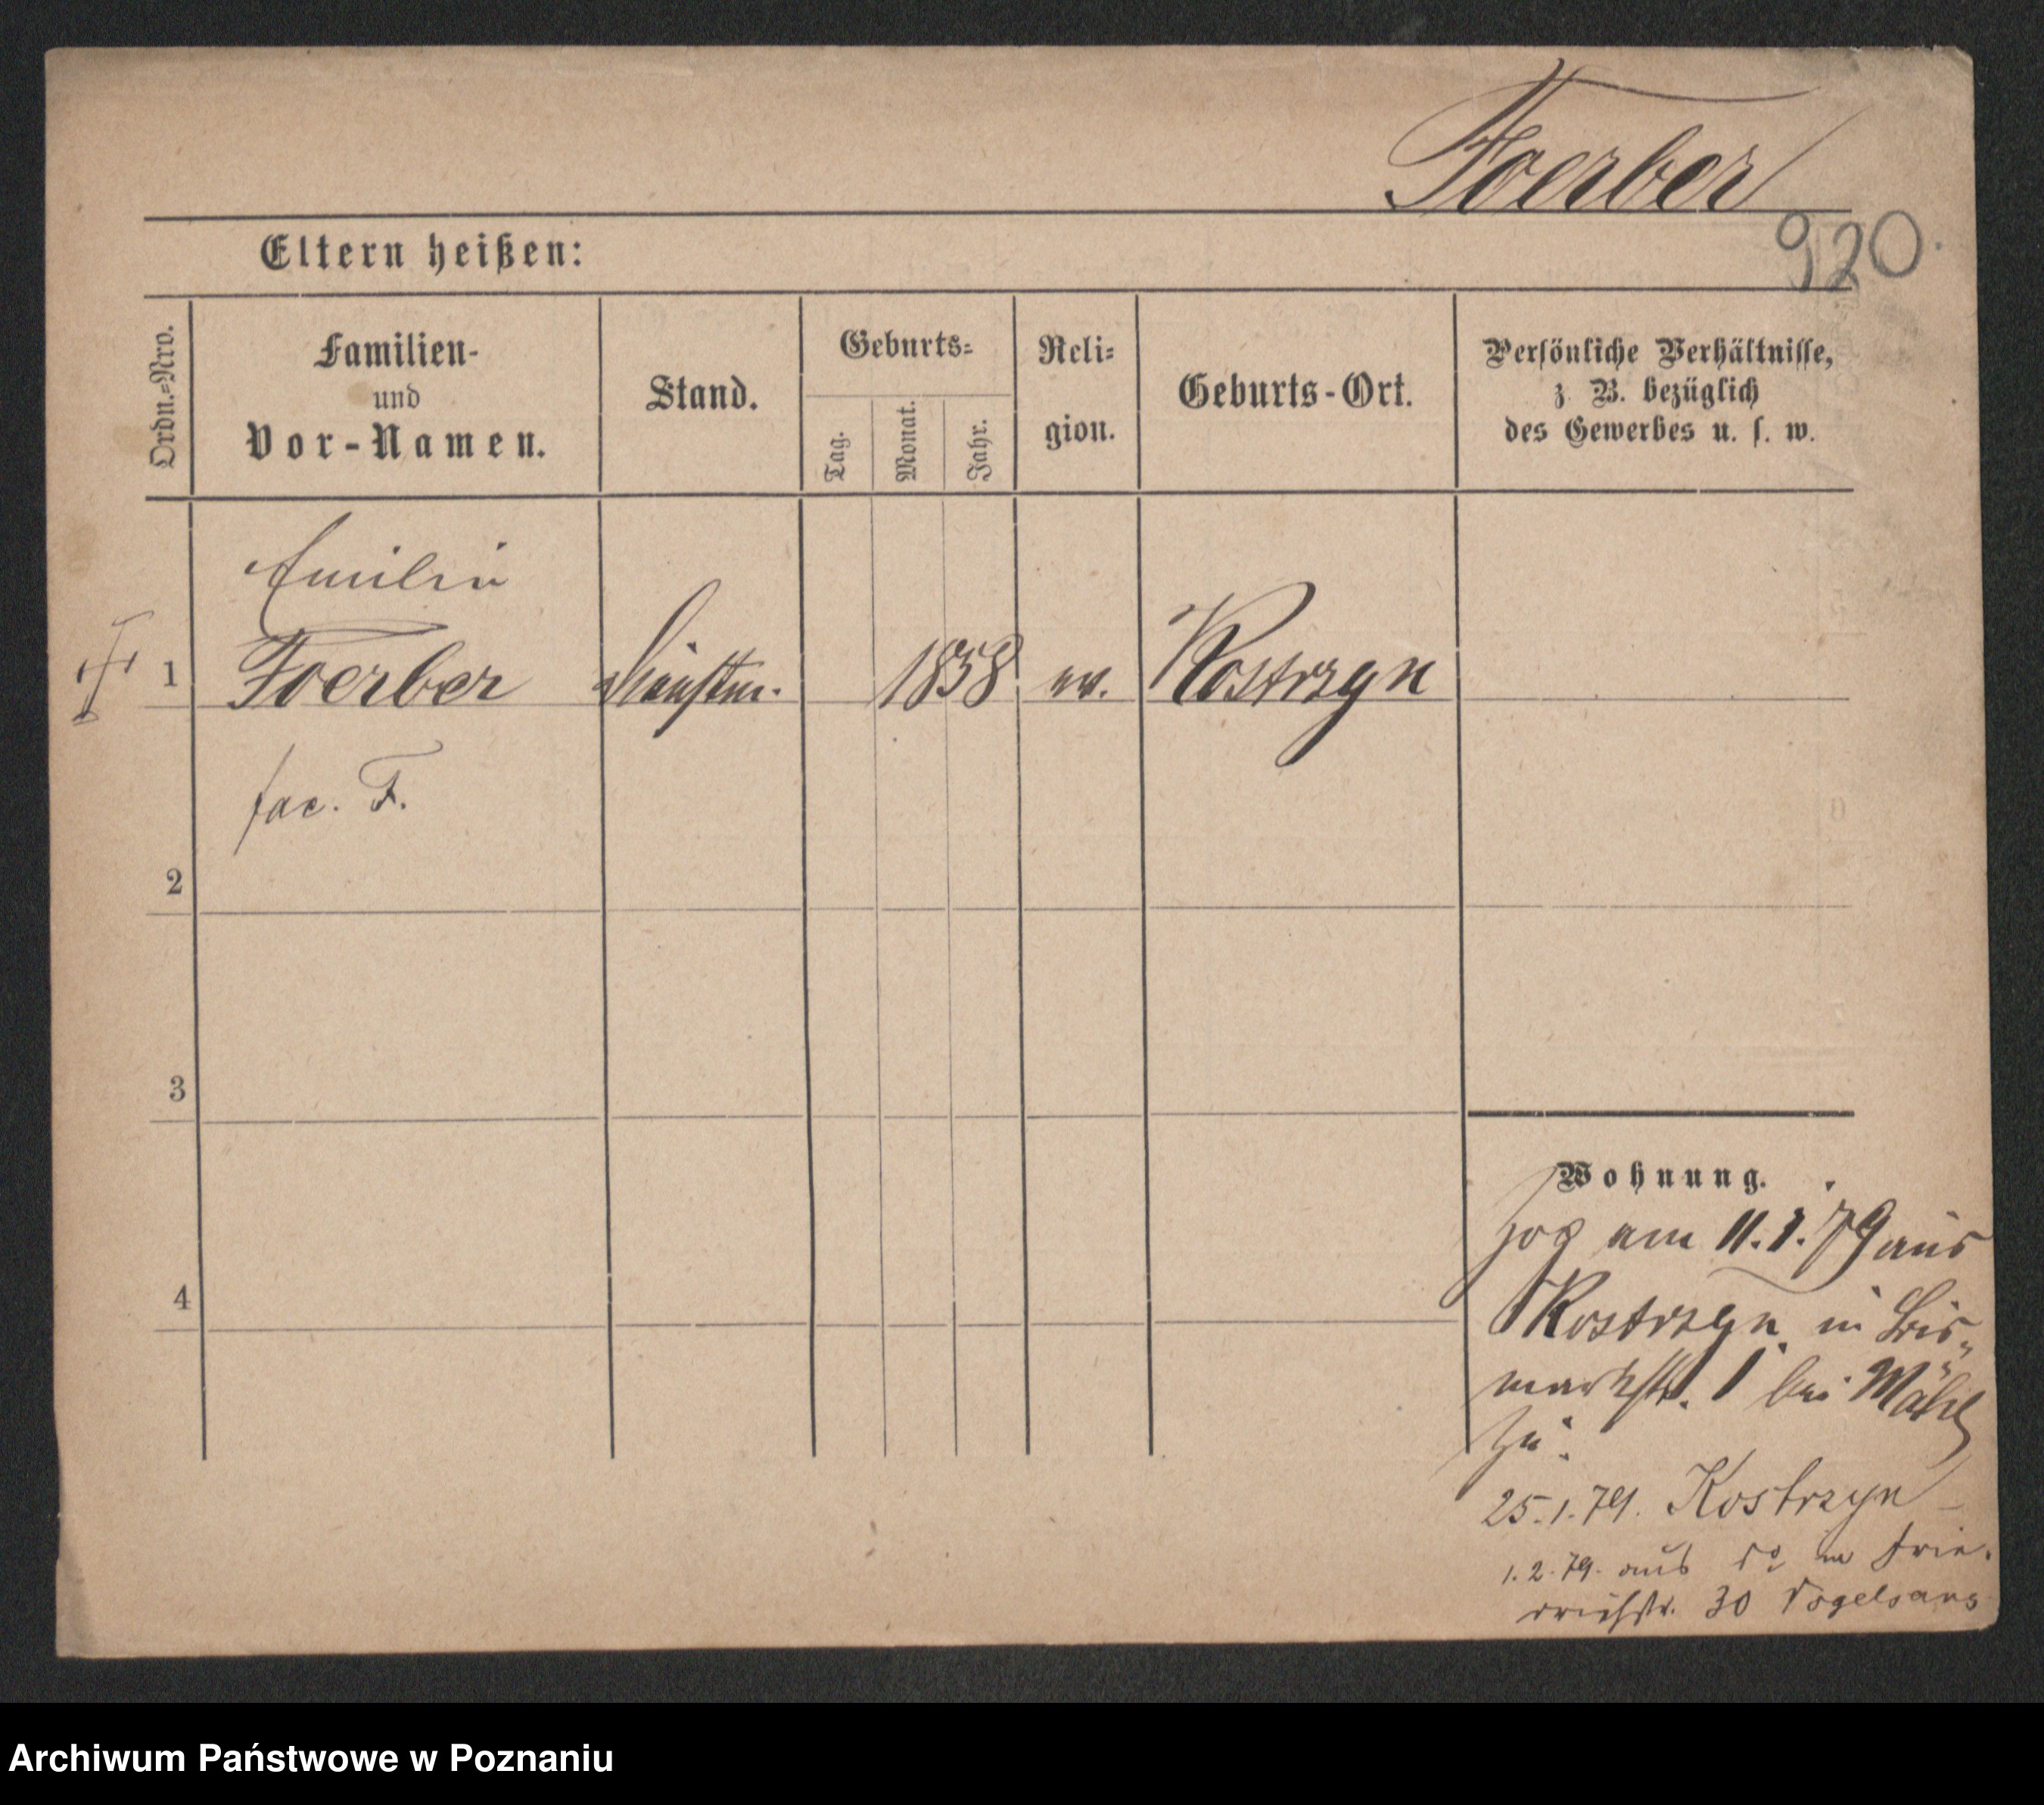 Foerber
920.
Eltern heißen:
Ordn.=Nro.
Familien-
und
Vor-Namen.
Stand.
Geburts=
Tag.
Monat.
Jahr.
Reli=
gion.
Geburts-Ort.
Persönliche Verhältnisse,
z. B. bezüglich
des Gewerbes u. s. w.
Emilie
1 Foerber 1858 ev. Kostrzyn
fac. F.
2
3
4
Wohnung.
zog am 11.1.79 aus
Kostrzyn in Bis-
markstr. 1 bei
zu.
25.1.79. Kostrzyn
1.2.79. aus do in Frie-
drichstr. 30 Vogelsang
Archiwum Państwowe w Poznaniu